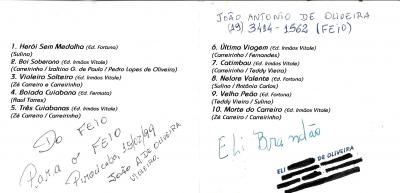 1. Herói Sem Medalha (Ed. Fortuna)
(Sulino)
2. Boi Soberano (Ed. Irmãos Vitale)
(Carreirinho / Izaltino G. de Paulo / Pedro Lopes de Oliveira)
3. Violeiro Solteiro (Ed. Irmãos Vitale)
(Zé Carreiro e Carreirinho)
4. Boiada Cuiabana (Ed. Fermata)
(Raul Torres)
5. Três Cuiabanas (Ed. Irmãos Vitale)
(Zé Carreiro / Carreirinho)
Do FEIO
Para o FEIO
Piracicaba, 15/02/99
João A DE OLIVEIRA
VIOLEIRO.
JOÃO ANTONIO DE OLIVEIRA
(19) 3414-1562 (FEIO)
6. Última Viagem (Ed. Irmãos Vitale)
(Carreirinho / Fernandes)
7. Catimbau (Ed. Irmãos Vitale)
(Carreirinho / Teddy Vieira)
8. Nelore Valente (Ed. Irmãos Vitale)
(Sulino / Antônio Carlos)
9. Velho Peão (Ed. Irmãos Vitale)
(Teddy Vieira / Sulino)
10. Morte do Carreiro (Ed. Irmãos Vitale)
(Zé Carreiro / Carreirinho)
Eli Brandão
ELI DE OLIVEIRA